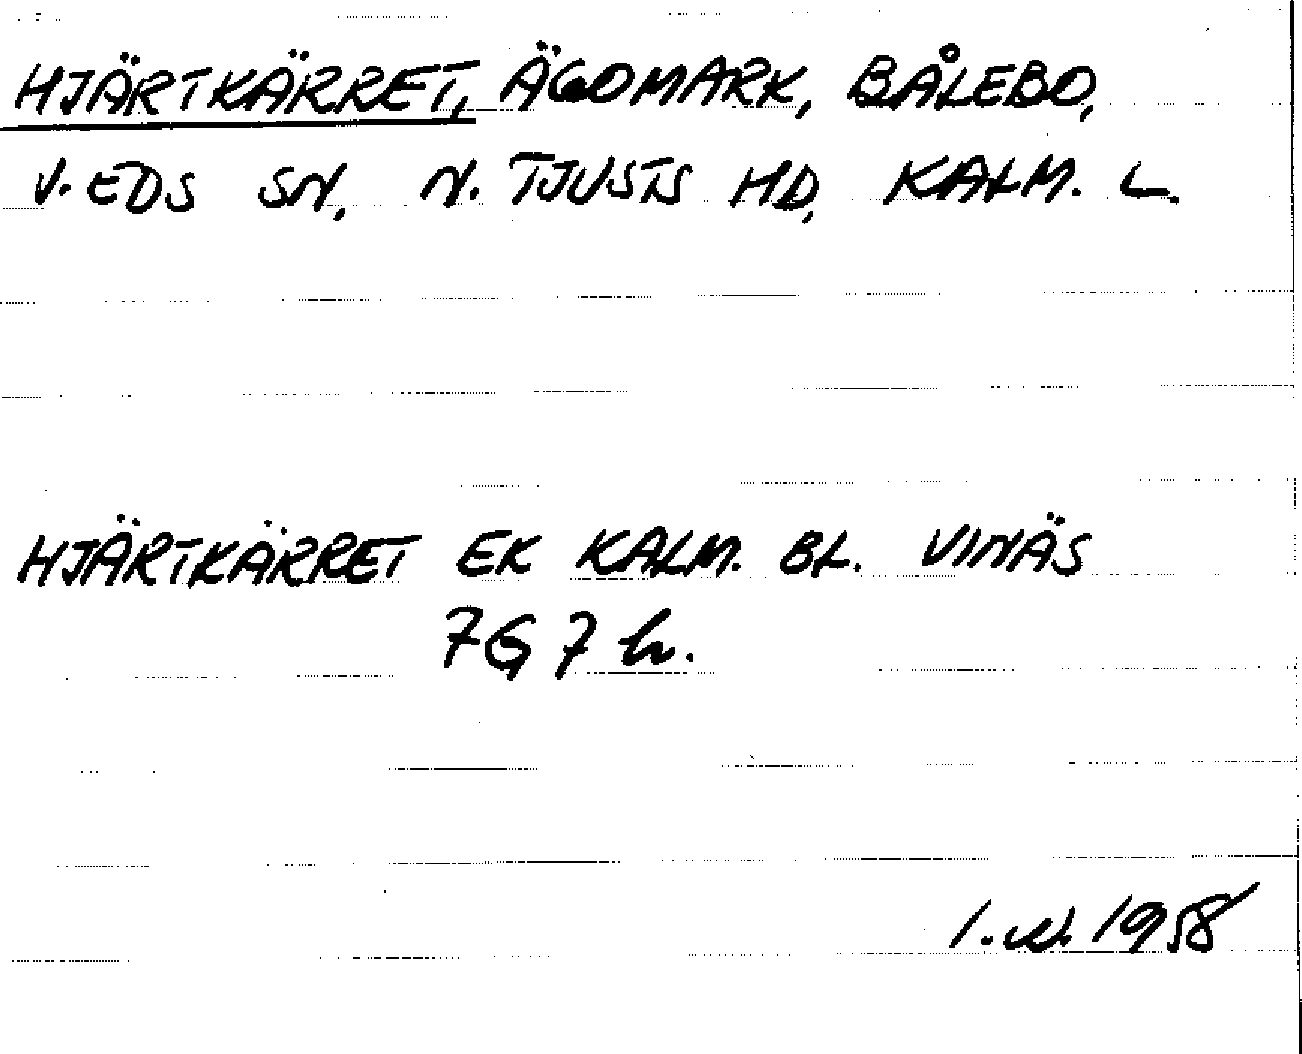 HJÄRTKÄRRET, ÄGOMARK, BÅLEBO,
V. EDS SN, N. TJUSTS HD, KALM. L.
HJÄRTKÄRRET EK KALM. BL. VINÄS
7G 7h.
1. 1958